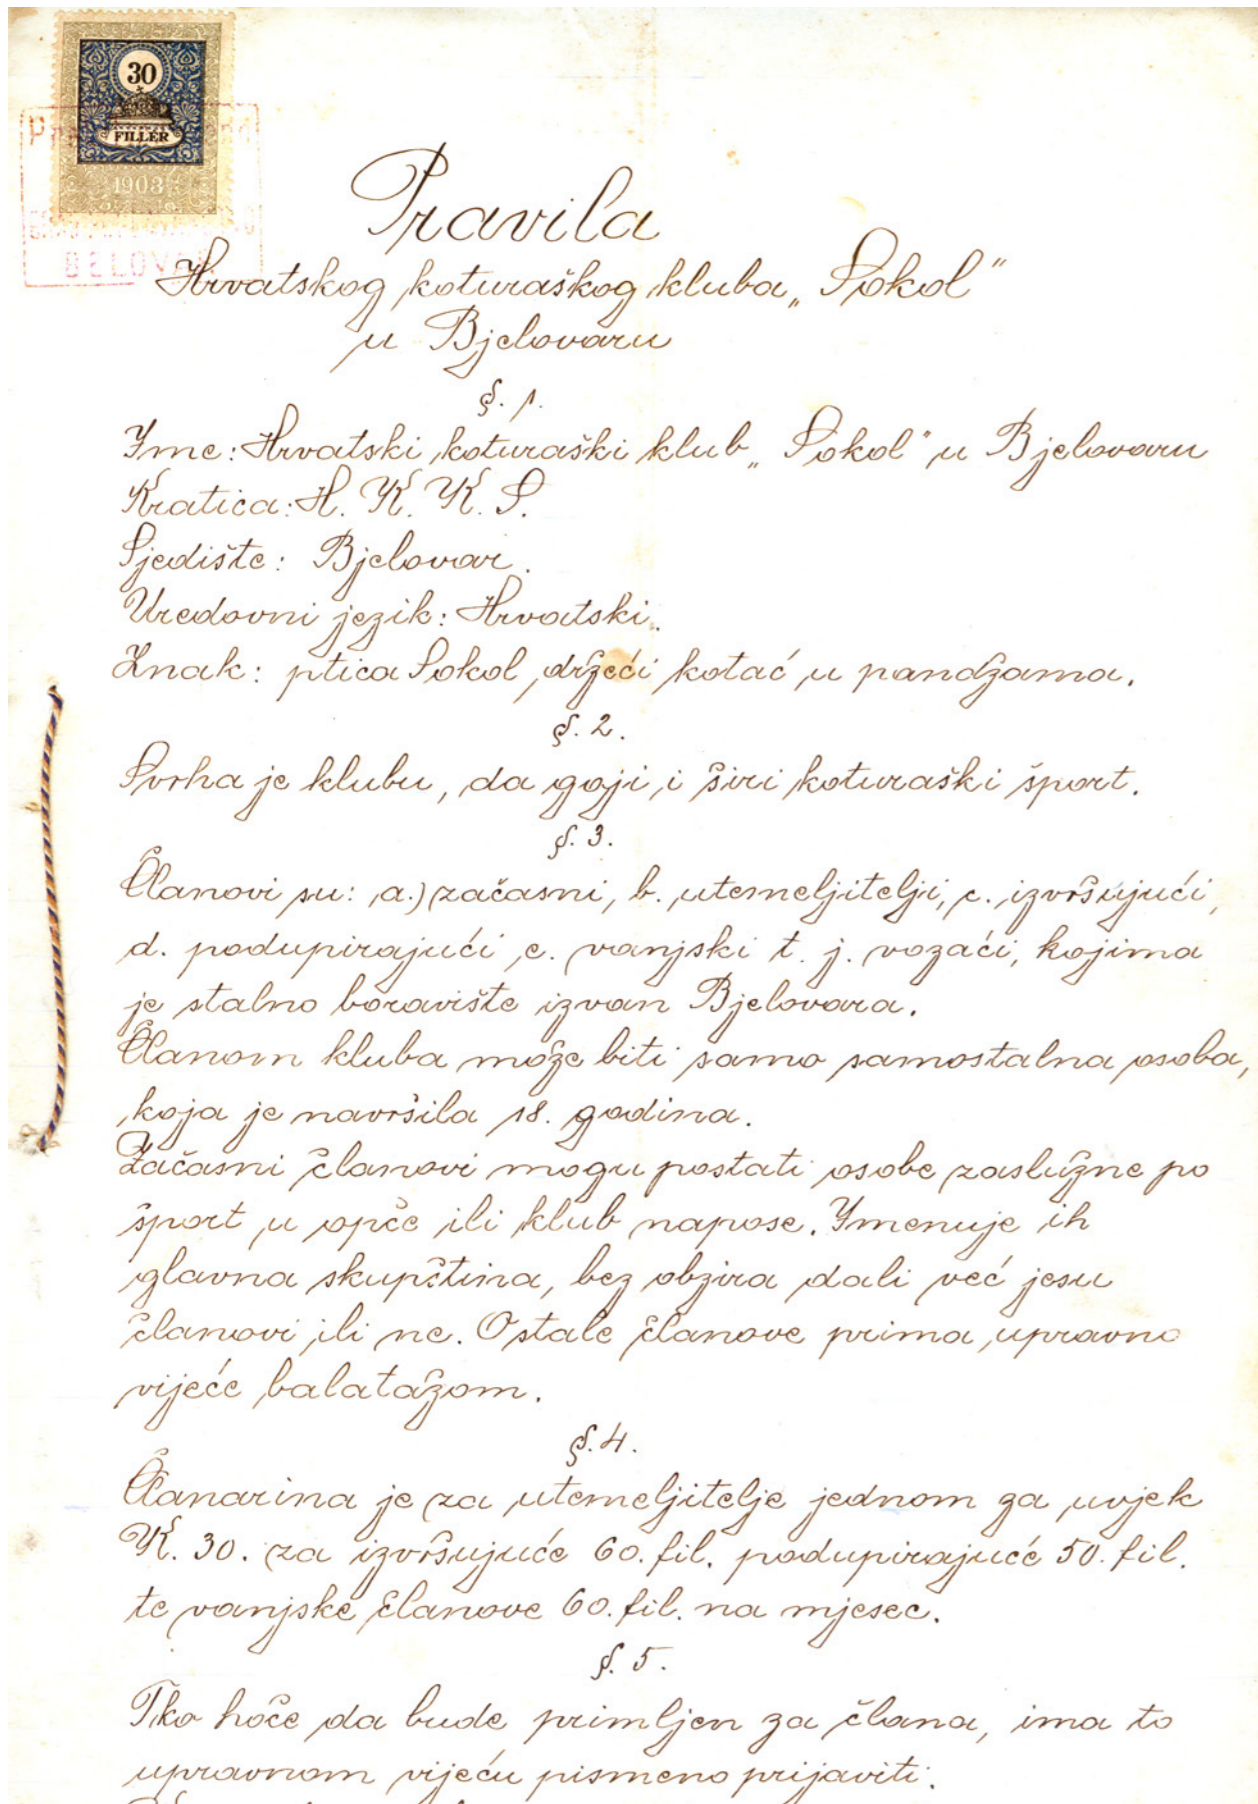 30
FILLÉR
1903
BELOVAR
Pravila
Hrvatskog koturaškog kluba „Sokol"
u Bjelovaru
§. 1.
Ime: Hrvatski koturaški klub „Sokol" u Bjelovaru
Kratica: H. K. K. S.
Sjedište: Bjelovar.
Uredovni jezik: Hrvatski.
Znak: ptica Sokol, držeći kotać u pandžama.
§. 2.
Svrha je klubu, da goji i širi koturaški šport.
§. 3.
Članovi su: a.) začasni, b. utemeljitelji, c. izvršujući,
d. podupirajući, e. vanjski t. j. vozaći, kojima
je stalno boravište izvan Bjelovara.
Članom kluba može biti samo samostalna osoba,
koja je navršila 18. godina.
Začasni članovi mogu postati osobe zaslužne po
šport u opće ili klub napose. Imenuje ih
glavna skupština, bez obzira dali već jesu
članovi ili ne. Ostale članove prima upravno
vijeće balatažom.
§. 4.
Članarina je za utemeljitelje jednom za uvjek
K. 30. za izvršujuće 60. fil. podupirajuće 50. fil.
te vanjske članove 60. fil. na mjesec.
§. 5.
Tko hoće da bude primljen za člana, ima to
upravnom vijeću pismeno prijaviti.